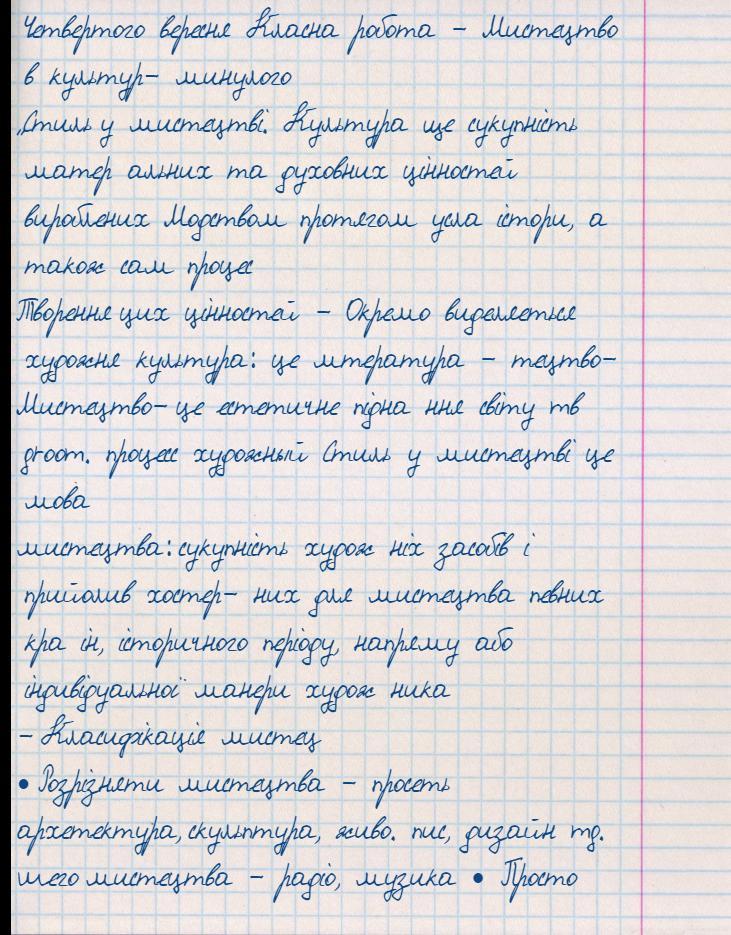 Четвертого вересня Класна робота - Мистецтво
в культур- минулого
„Стиль у мистецтві. Культура ще сукупність
матер альних та духовних цінностей
вироблених Модством протягом усла істори, а
також сам процес
Творення цих цінностей - Окремо виделяеться
художня культура: це мтература - тецтво-
Мистецтво- це естетичне підна ння світу тв
groom. процесс художный Стиль у мистецтві це
мова
мистецтва: сукупність худож ніх засобів і
прийолив хостер- них для мистецтва певних
кра ін, історичного періоду, напряму або
індивідуальної манери худож ника
- Класифікація мистец
• Розрізняти мистецтва - просеть
архетектура, скульптура, живо. пис, дизайн тд.
шего мистецтва - радіо, музика • Просто